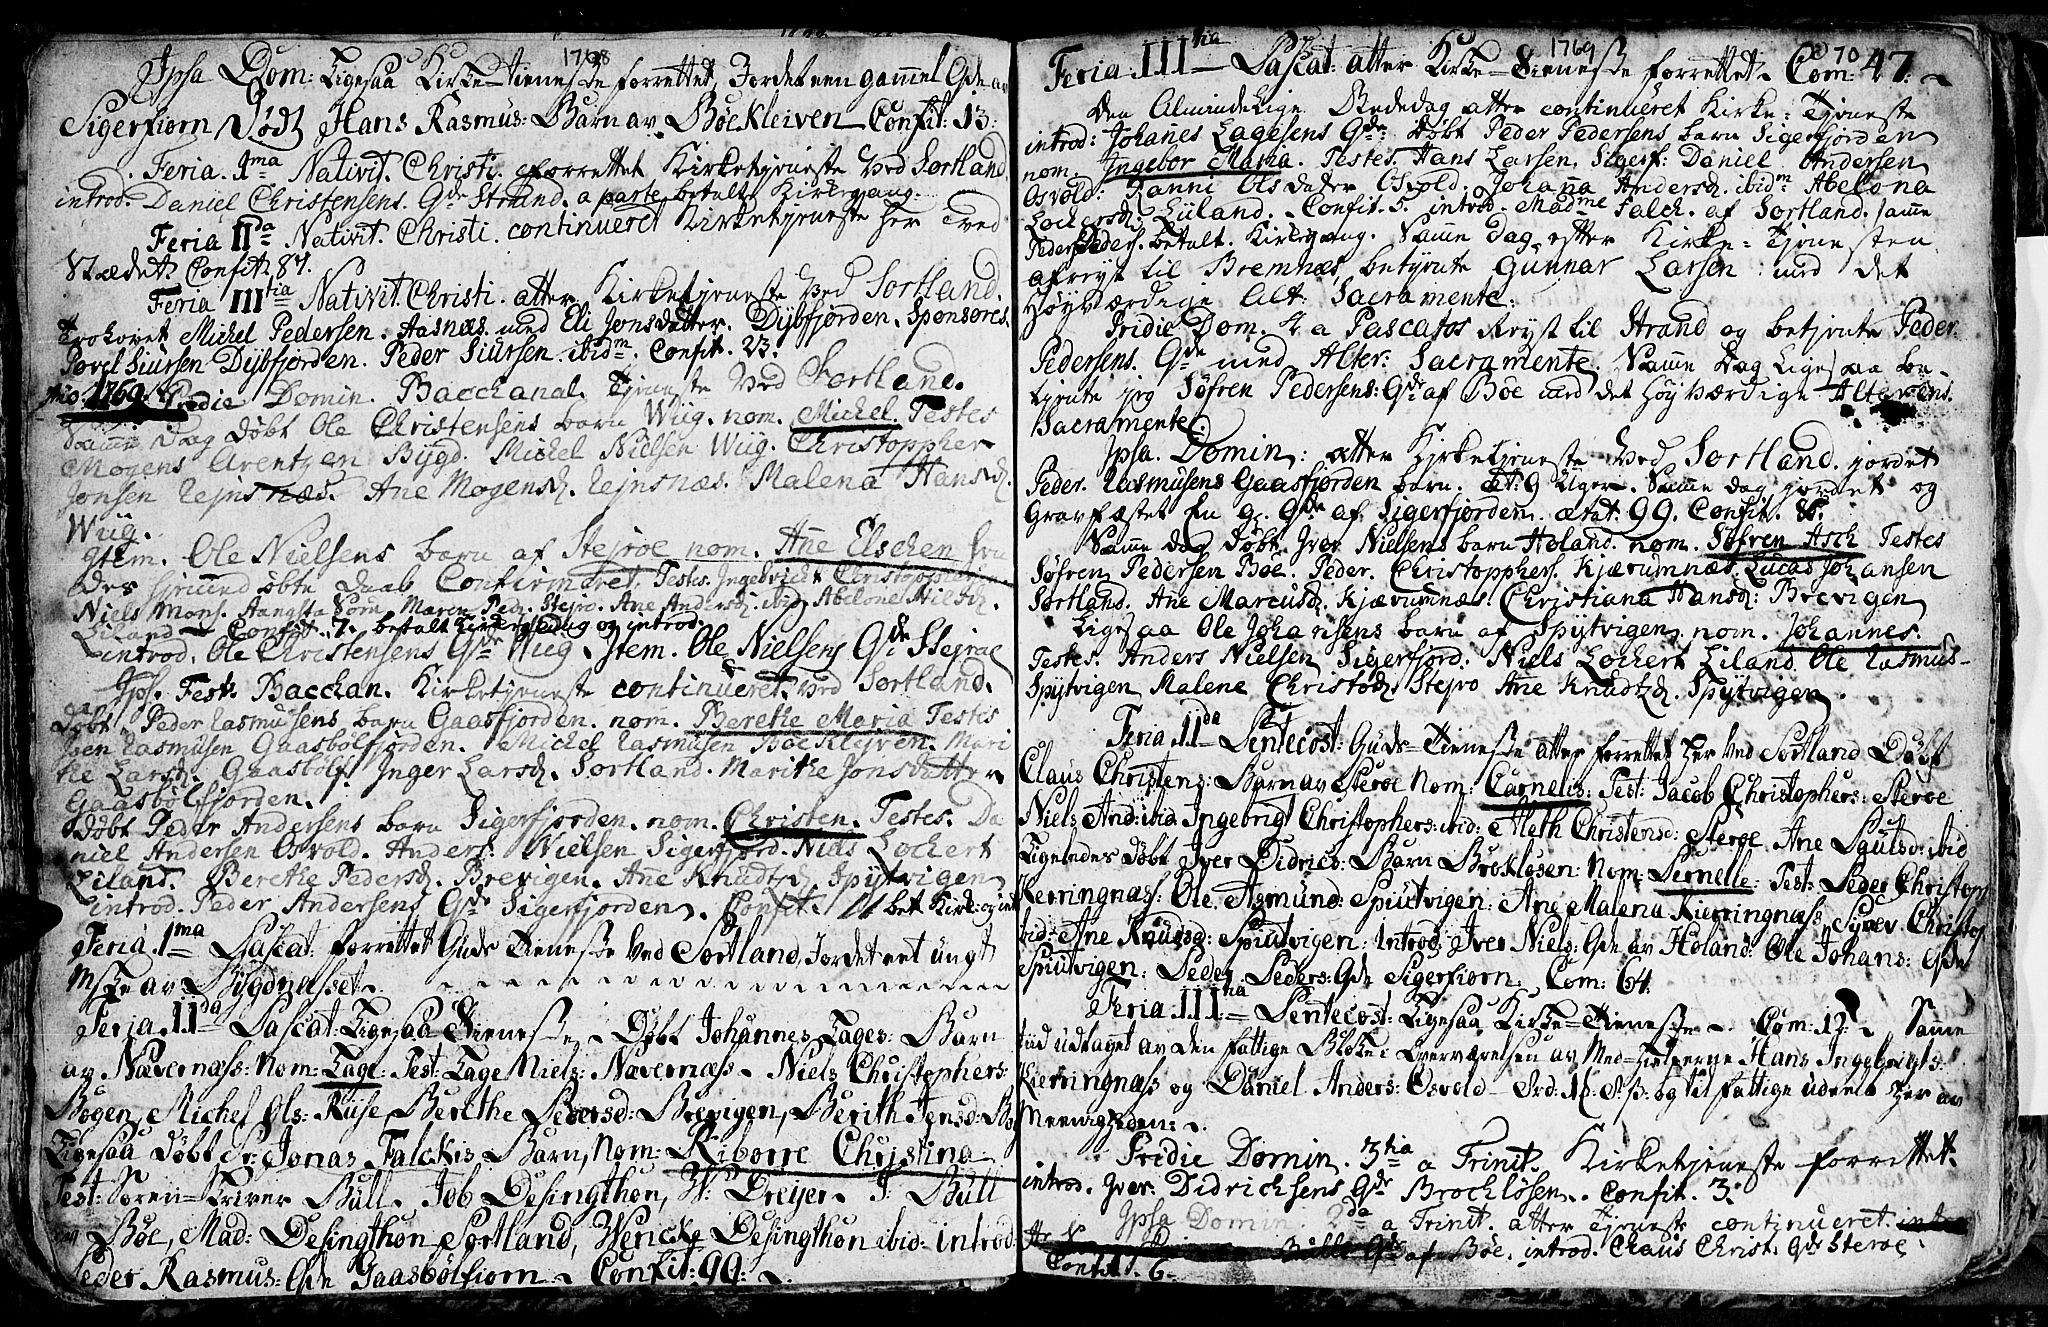 1768
Ipsa Dom: Ligesaa Kirke-Tieneste forrettet, Jordet een gammel Qde av
Sigerfiorn, Født Hans Rasmus: Barn av Bøckleiven. Confit: 13:
Feria. 1ma Nativit. Christi. forrettet Kirketjeneste ved Sortland.
introd. Daniel Christensens. Qde Strand. a parte betalt Kirkegang.
Feria IIda Nativit. Christi. continueret Kirketjeneste her ved
Stædet. Confit. 87.
Feria IIItia Nativit. Christi. atter Kirketjeneste ved Sortland.
trolovet Michel Pedersen. Aasnæs. med Eli Jonsdatter. Dybfjorden. Sponsores.
Povel Siursen Dybfjorden. Peder Siursen. ibidm. Confit. 23.
Ano: 1769. Pridie Domin. Bacchanal. Tjeneste ved Sortland.
samme Dag døbt Ole Christensens barn Wiig. nom. Michel. Testes
Mogens Arentzen Bygd. Michel Nielsen Wiig. Christoppher
Jonsen Rejnsnæs. Ane Mogensd. Rejnsnæs. Malena Hansd.
Wiig.
Item. Ole Nielsens barn af Stejroe nom. Ane Elschen
des hjemme døbte daab Confirmeret. Testes. Ingebricht Christoppher
Niels Mons. Maren Pedr. Stejro. Ane Andersd. ibid. Abelone
Liland. Confit. 7. betalt Kirkegang og introd.
introd. Ole Christensens Qde Wiig. Item. Ole Nielsens Qde Stejroe
Ips. Fest. Bacchan. Kirketjeneste continueret. ved Sortland.
Døbt Peder Rasmusens barn Gaasfjorden. nom. Berethe Maria Testes
Rasmusen Gaasbølfjorden. Michel Rasmusen Bøeklejven. Mari
the Larsd. Gaasbølf. Inger Larsd. Sortland. Marithe Jonsdatter
Gaasbølfjorden.
Døbt Peder Andersens barn Sigerfjorden. nom. Christen. Testes. Da
niel Andersen Osvold. Anders Nielsen Sigerfjord. Niels Lochert
Liland. Berethe Pedersd. Brevigen. Ane Knudtzd. Spytvigen
introd. Peder Andersens Qde Sigerfjorden. Confit. 11
Feria. 1ma Pascat: forrettet Guds Tieneste ved Sortland, Jordet eet ungt
Mske av Bygdnesset.
Feria IIda Pascat: Ligesaa Tieneste, Døbt Johannes Lages: Barn
av Nævernæss: Nom: Lage: Test: Lage Niels: Nævernæss. Niels Christophers:
Bogen, Michel Ols: Kuse, Berethe Pedersd: Brevigen, Berith Jensd:
Ligesaa Døbt Sr: Jonas Falckis Barn, Nom: Riborre Christina
Test: Soren-Scriver Bull. Job Desingthon, W: Dreyer. J: Bull
Bøe, Mad: Desingthon Sortland, Wencke Desingthon ibid: introd:
Peder Rasmus: Qde Gaasbølfiorn. Confit: 99:
1769 70
Feria III tia Pascat: atter Kirke-Tieneste forrettet. Com: 47.
Den Almindelige Bededag atter continueret Kirke-Tjeneste
introd: Johanes Lagesens Qde. Døbt Peder Pedersens barn Sigerfjorden
nom. Ingebor Maria. Testes. Hans Larsen. Sigerf: Daniel Andersen
Osvold. Ranni Olsdater Osvold. Johana Andersd. ibidm Abelona
Lochersd Lijland. Confit. 5. introd. Madme Falch. af Sortland. samme
Peder Peders. betalt. Kirkegang. Samme dag efter Kirke-Tjenesten
afrejst til Bremnæs, betjente Gunnar Larsen med det
Høyværdige Alt: Sacramente.
Pridie Dom. a Pascatos Rejst til Strand og betjente Peder
Pedersens. Qde med Alter: Sacramente. Samme Dag Ligesaa be-
tjente jeg Søfren Pedersens: Qde af Bøe med det Høyværdige Alterens
Sacramente.
Ipsa. Domin: atter Kirketjeneste ved Sortland. jordet
Peder Rasmusens Gaasfjorden barn. æt. 9 Uger. Samme dag jordet og
Gravfæstet En g. Qde af Sigerfjorden. ætat. 99. Confit. 8.
Samme dag Døbt. Iver Nielsens barn Holand. nom. Søfren Asch Testes
Søfren Pedersen Bøe. Peder. Christopphers. Kjærumnæs. Lucas Johansen
Sortland. Ane Marcusd. Kjærumnæs. Christiana Hansd: Brevigen
Ligesaa Ole Johansens barn af Spytvigen. nom. Johannes.
Testes. Anders Nielsen Sigerfjord. Niels Lochert Liland. Ole Rasmus-
Spytvigen Malene Christod. Stejro Ane Knudtzd. Spytvigen.
Feria. IIda Pentecost: Guds-Tieneste atter forrettet her ved Sortland Døbt
Claus Christens: Barn av Steroe Nom: Cornelis: Test: Jacob Christophers: Steroe
Niels And: ibid Ingebrigt Christophers: ibid: Aleth Christensd: Steroe. Ane Paulsd: ibid
Ligeledes døbt Iver Didrics: Barn Brokløsen: Nom: Pernelle: Test: Peder Christoph
Kierringnæs: Ole Asmund: Spiutvigen: Ane Malena Kierringnæss Christo
ibid: Ane Knudsd: Spiutvigen: Introd: Iver Niels: Qde av Holand: Ole Johans: Qde
Spiutvigen: Peder Peders: Qde Sigerfiorn. Com: 64.
Feria. III tia Pentecost: Ligesaa Kirke-Tieneste. Com: 12. Samme
tid udtaget av den fattige Blok: i overværelsen av Med-Hielperne Hans Ingebrigts:
Kierringnæss og Daniel Anders: Osvold og til fattige udeelt her av
Meenigheden:
Pridie Domin. 3tia a Trinit. Kirketjeneste forrettet.
introd. Iver. Didrichsens Qde Brochløsen. Confit. 3.
Ipsa Domin. a Trinit. atter Tjeneste continueret.
Bulls Qde af Bøe. introd. Claus Christ. Qde Steroe.
Confit. 6.